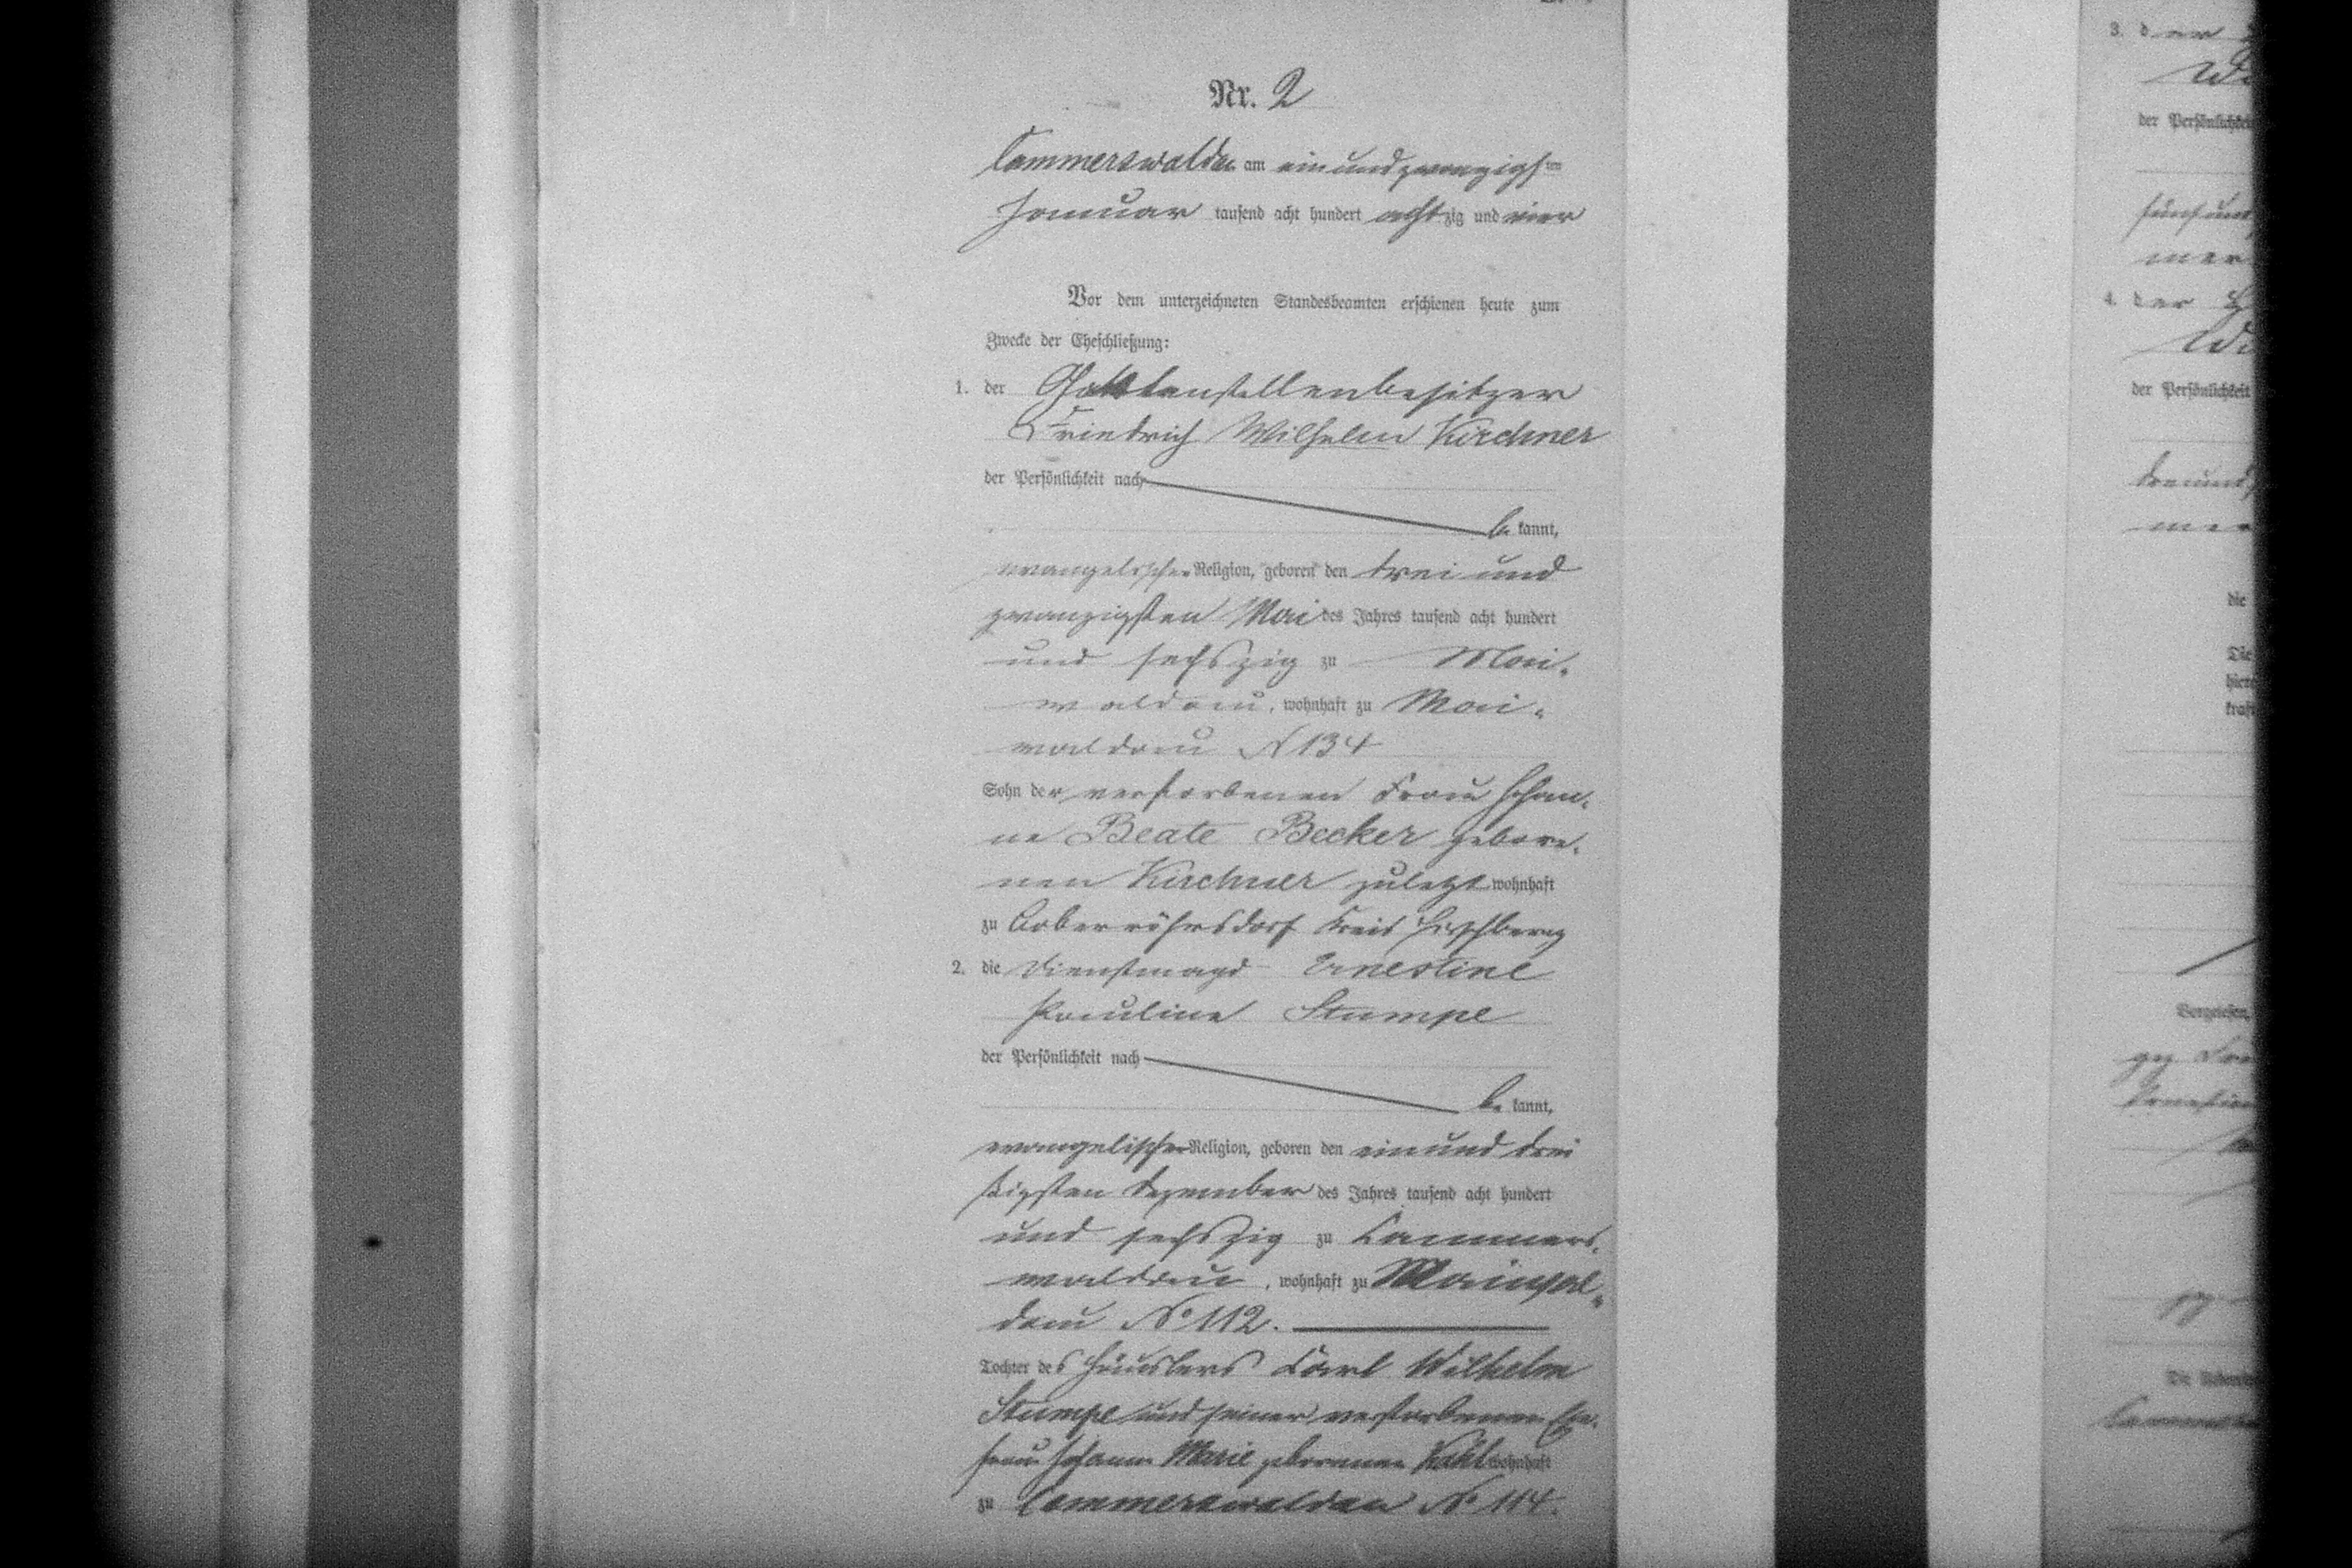 Nr. 2
Cammerswaldau am einundzwanzigsten
Januar tausend acht hundert achtzig und vier
Vor dem unterzeichneten Standesbeamten erschienen heute zum
Zwecke der Eheschließung:
1. der stellenbesitzer
Friedrich Wilhelm Kirchner
der Persönlichkeit nach
be kannt,
evangelischer Religion, geboren den drei und
zwanzigsten Mai des Jahres tausend acht hundert
und sechszig zu Mai-
waldau, wohnhaft zu Mai-
waldau N 134
Sohn der verstorbenen Frau Johan-
ne Beate Becker gebore-
nen Kirchner zuletzt wohnhaft
zu Boberröhrsdorf Kreis Hirschberg
2. die Dienstmagd Ernestine
Pauline Stumpe
der Persönlichkeit nach
be kannt,
evangelischer Religion, geboren den einund drei
ßigsten Dezember des Jahres tausend acht hundert
und sechszig zu Cammers-
waldau, wohnhaft zu Maiwal-
dau No 112.
Tochter des Häuslers Carl Wilhelm
Stumpe und seiner verstorbenen Ehe-
frau Johanne Marie geborenen wohnhaft
zu Cammerswaldau No 114.
3. der
der Persönlichkeit
fünfund
4. der
der Persönlichkeit
dreiund
die
Die
Vorgelesen,
gez